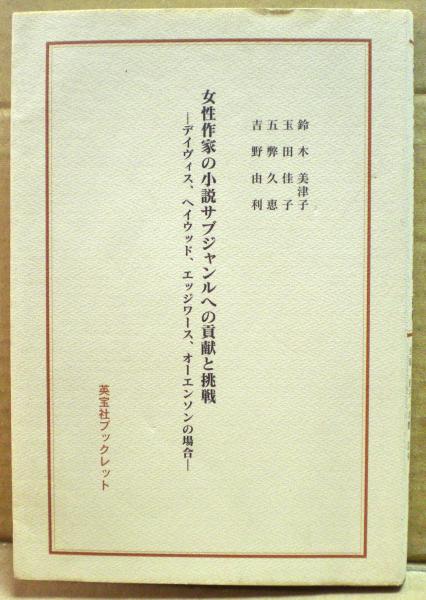 鈴木美津子
玉田佳子
五弊久恵
吉野由利
女性作家の小説サブジャンルへの貢献と挑戦
―デイヴィス、ヘイウッド、エッジワース、オーエンソンの場合―
英宝社ブックレット